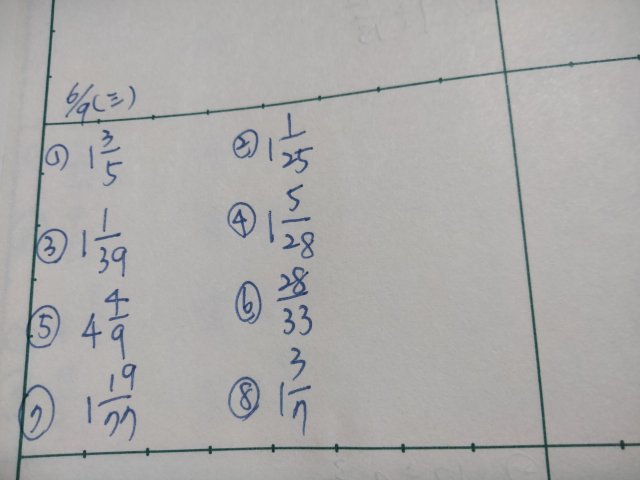 6/9(三)
① 1 3/5 ② 1 1/25
③ 1 1/39 ④ 1 5/28
⑤ 4 4/9 ⑥ 28/33
⑦ 1 19/77 ⑧ 1 3/7